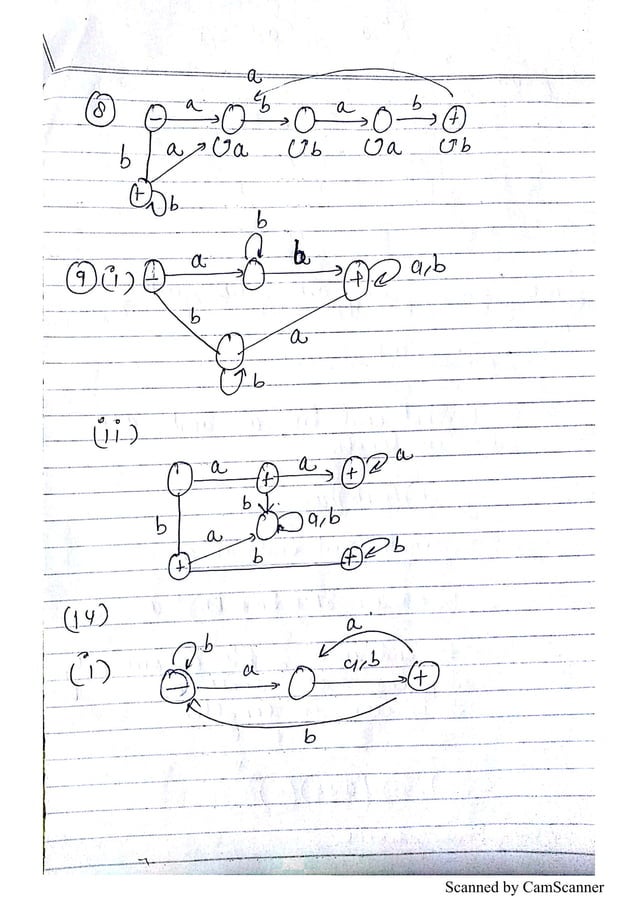 a
(8) - a b a b +
b a a b a b
+ b
b
(9) (i) ± a b + a,b
b a
b
(ii)
a + a + a
b b
a a,b
+ b + b
(14)
a
(i) b
- a a,b +
b
Scanned by CamScanner